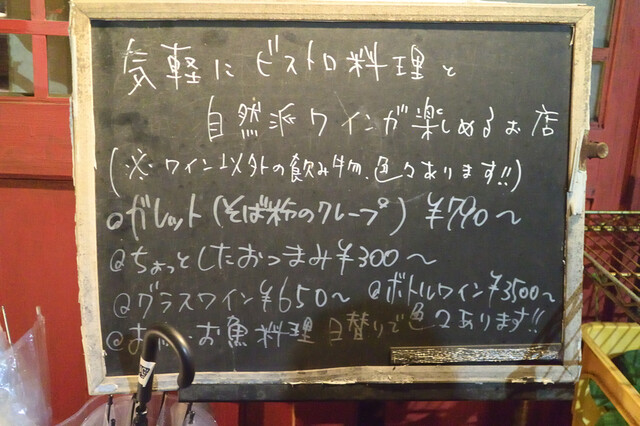 気軽にビストロ料理と
自然派ワインが楽しめるお店
(※ワイン以外の飲み物、色々あります!!)
◎ガレット(そば粉のクレープ)¥790〜
◎ちょっとしたおつまみ¥300〜
◎グラスワイン¥650〜 ◎ボトルワイン¥3500〜
◎お お魚料理 日替りで色々あります!!